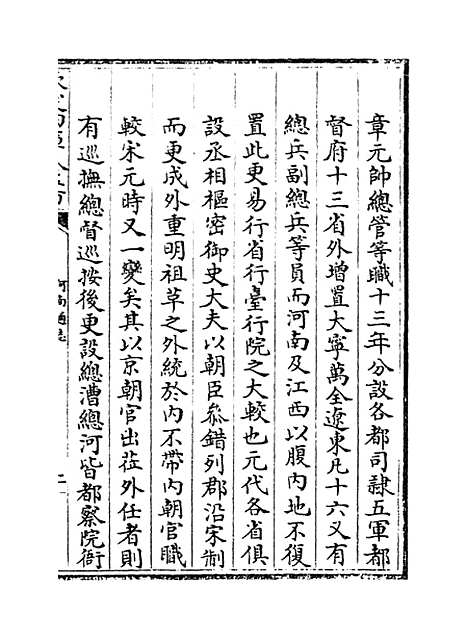 章元帥總管等職十三年分設各都司隷五軍都
督府十三省外增置大寧萬全遼東凡十六又有
總兵副總兵等員而河南及江西以腹內地不復
置此更易行省行臺行院之大較也元代各省俱
設丞相樞密御史大夫以朝臣叅錯列郡沿宋制
而更成外重明祖革之外統於內不帶內朝官職
較宋元時又一變矣其以京朝官出莅外任者則
有巡撫總督巡按後更設總漕總河皆都察院銜
河南通志